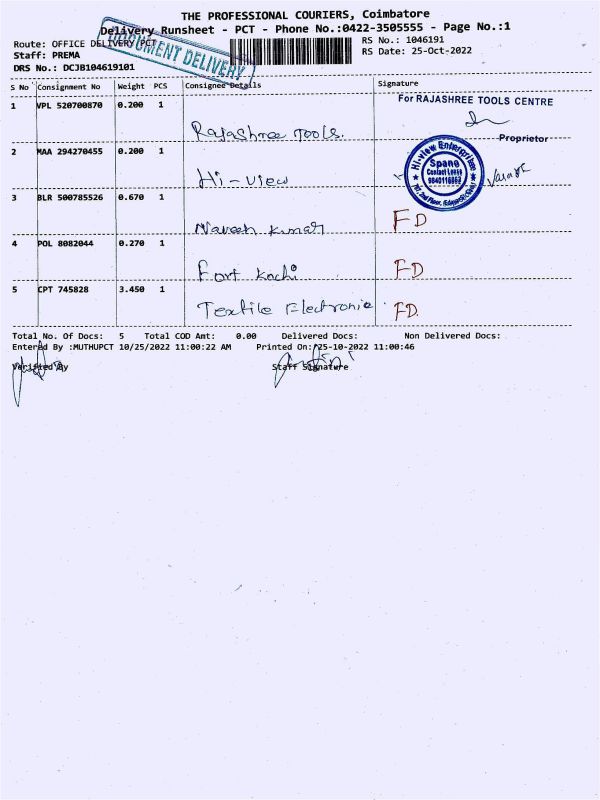 THE PROFESSIONAL COURIERS, Coimbatore
Delivery Runsheet - PCT - Phone No.:0422-3505555 - Page No.:1
Route: OFFICE DELIVERY PCT
RS No.: 1046191
Staff: PREMA
RS Date: 25-Oct-2022
DRS No.: DCJB104619101
DOCUMENT DELIVERY
S No Consignment No Weight PCS Consignee Details Signature
1 VPL 520700870 0.200 1
For RAJASHREE TOOLS CENTRE
Rajashree Tools.
Proprietor
2 MAA 294270455 0.200 1
Hi-view Enterprises
Spane
Contact Lens
Hi-view
3 BLR 500785526 0.670 1
Naveen Kumar FD
4 POL 8082044 0.270 1
Fort Kochi FD
5 CPT 745828 3.450 1
Textile Electronic. FD.
Total No. Of Docs: 5 Total COD Amt: 0.00 Delivered Docs: Non Delivered Docs:
Entered By :MUTHUPCT 10/25/2022 11:00:22 AM Printed On: 25-10-2022 11:00:46
Verified By Staff Signature